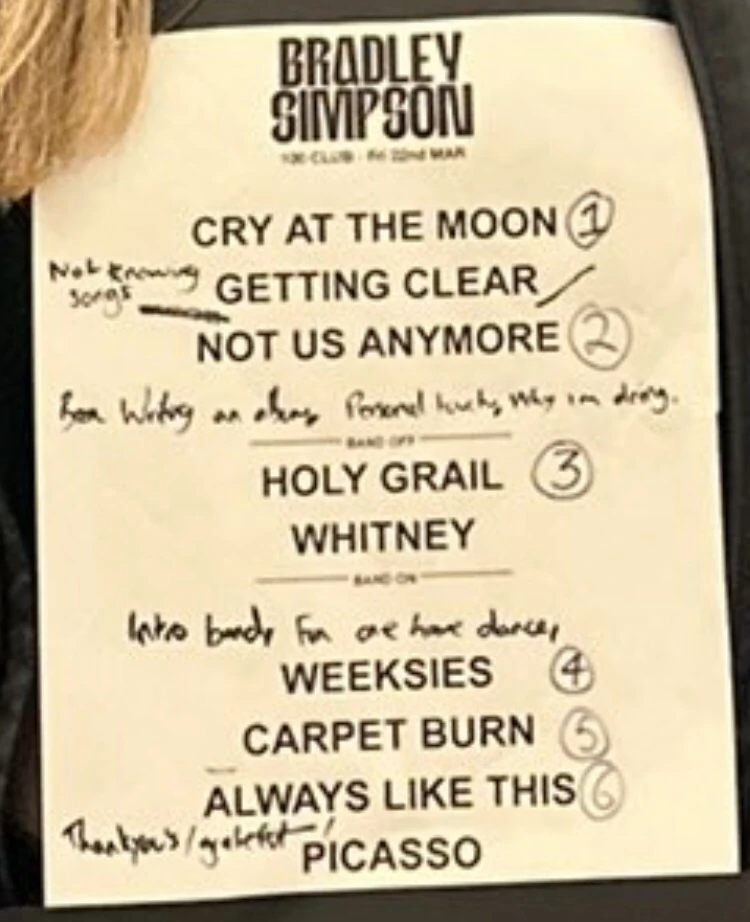 BRADLEY
SIMPSON
100 CLUB - Fri 22nd MAR
CRY AT THE MOON 1
Not knowing
songs
GETTING CLEAR
NOT US ANYMORE 2
Been Writing an Personal Why im doing.
BAND OFF
HOLY GRAIL 3
WHITNEY
BAND ON
Intro band, one more dance,
WEEKSIES 4
CARPET BURN 5
ALWAYS LIKE THIS 6
Thankyou's /
PICASSO